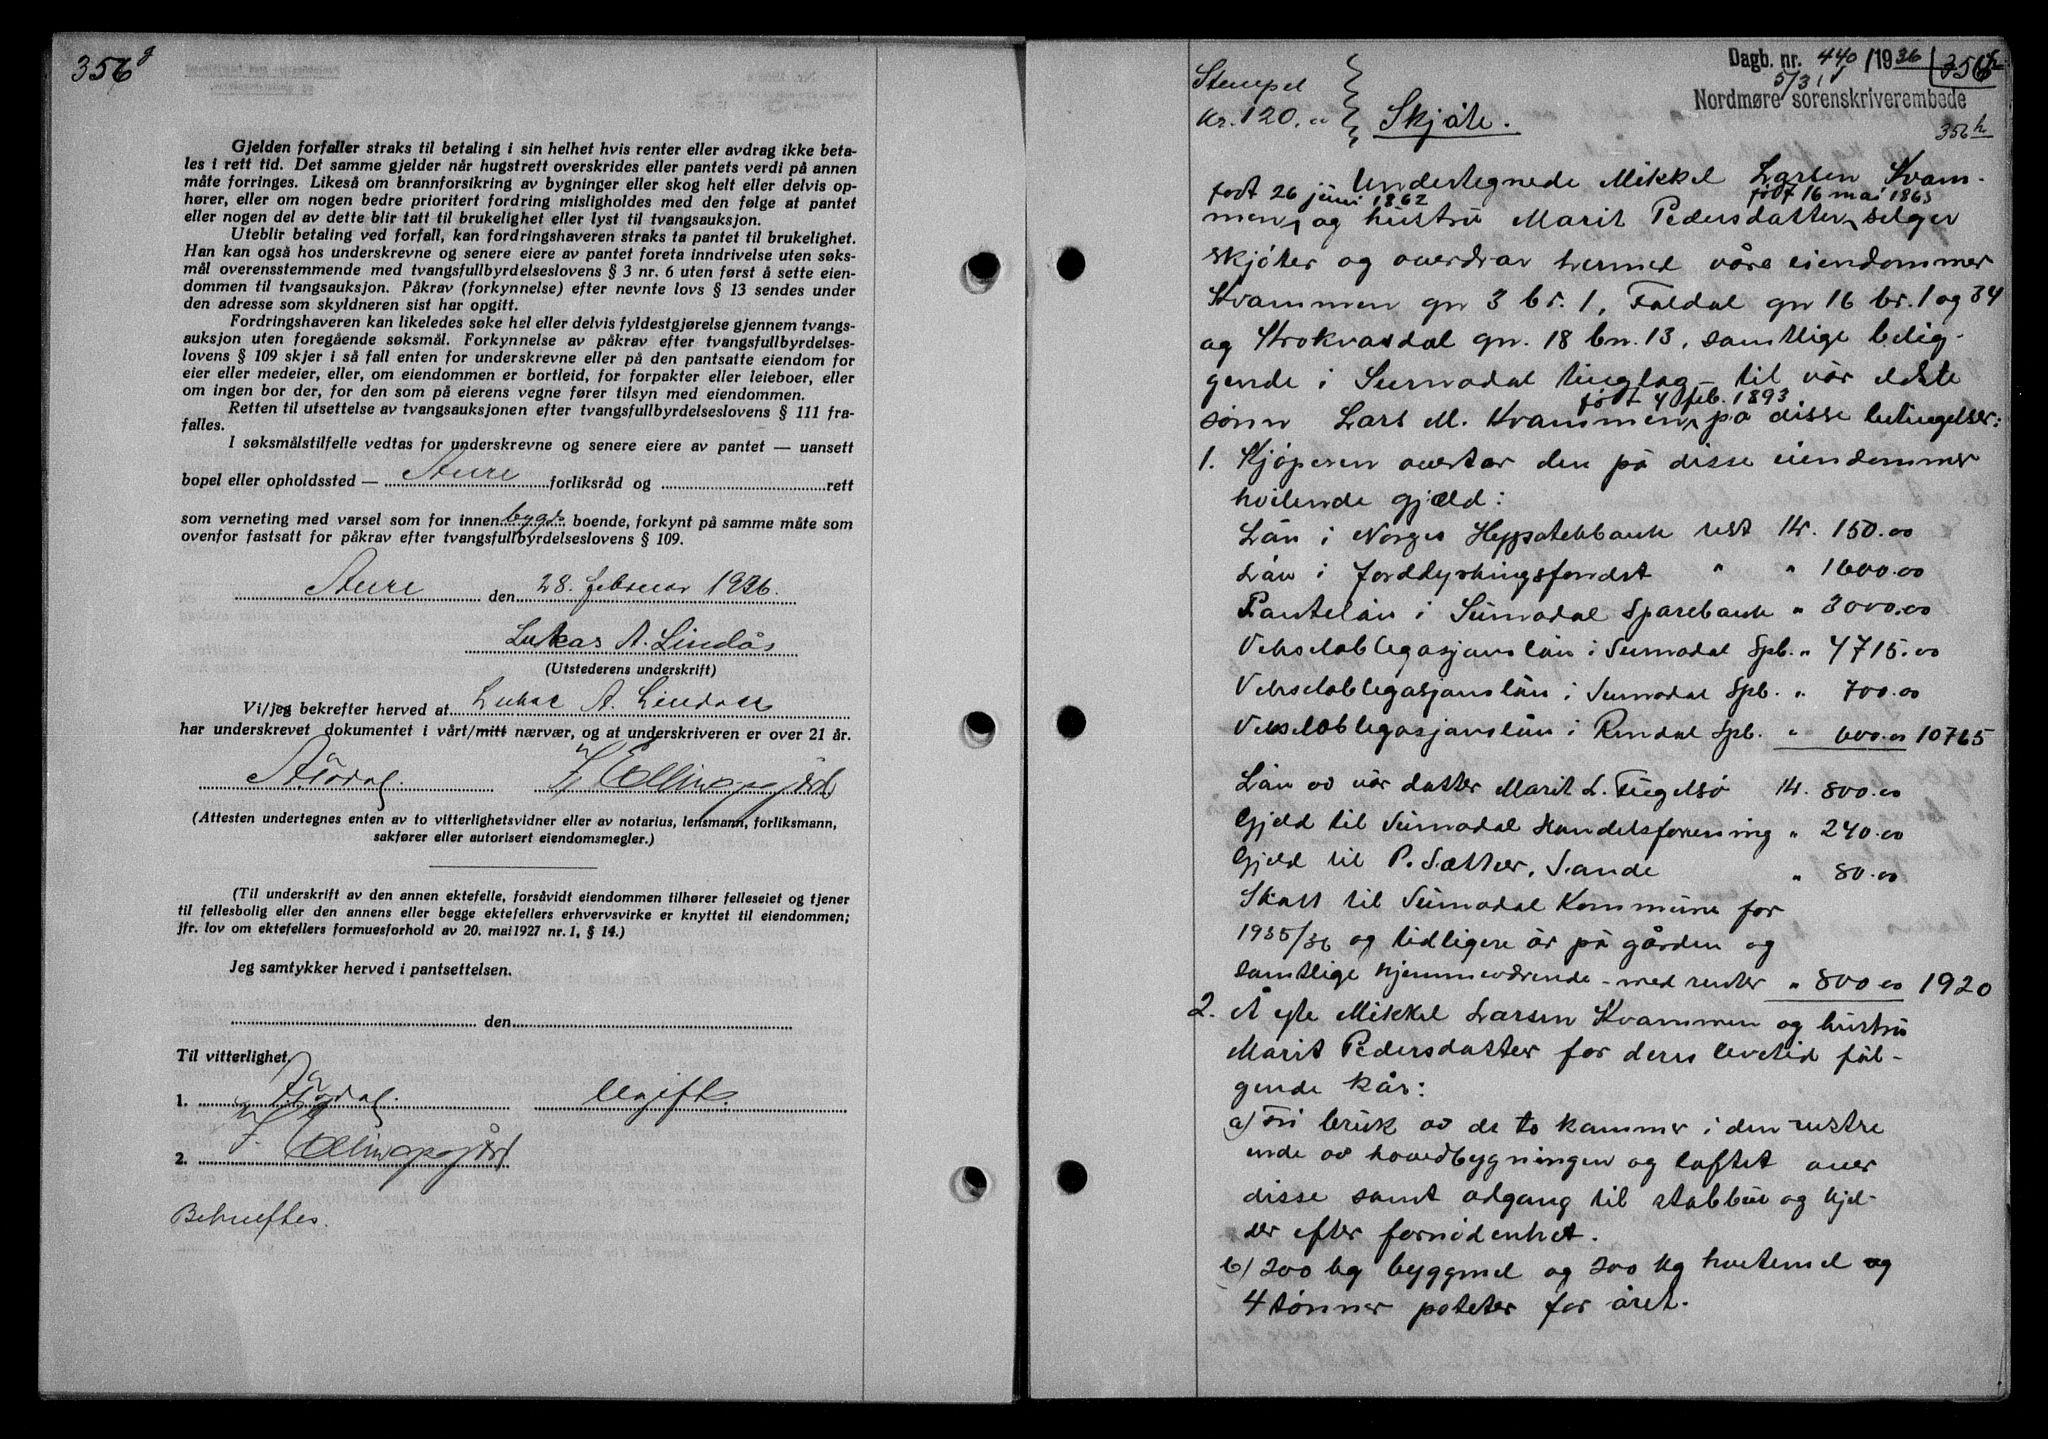 356 g
Gjelden forfaller straks til betaling i sin helhet hvis renter eller avdrag ikke beta-
les i rett tid. Det samme gjelder når hugstrett overskrides eller pantets verdi på annen
måte forringes. Likeså om brannforsikring av bygninger eller skog helt eller delvis op-
hører, eller om nogen bedre prioritert fordring misligholdes med den følge at pantet
eller nogen del av dette blir tatt til brukelighet eller lyst til tvangsauksjon.
Uteblir betaling ved forfall, kan fordringshaveren straks ta pantet til brukelighet.
Han kan også hos underskrevne og senere eiere av pantet foreta inndrivelse uten søks-
mål overensstemmende med tvangsfullbyrdelseslovens § 3 nr. 6 uten først å sette eien-
dommen til tvangsauksjon. Påkrav (forkynnelse) efter nevnte lovs § 13 sendes under
den adresse som skyldneren sist har opgitt.
Fordringshaveren kan likeledes søke hel eller delvis fyldestgjørelse gjennem tvangs-
auksjon uten foregående søksmål. Forkynnelse av påkrav efter tvangsfullbyrdelses-
lovens § 109 skjer i så fall enten for underskrevne eller på den pantsatte eiendom for
eier eller medeier, eller, om eiendommen er bortleid, for forpakter eller leieboer, eller
om ingen bor der, for den som på eierens vegne fører tilsyn med eiendommen.
Retten til utsettelse av tvangsauksjonen efter tvangsfullbyrdelseslovens § 111 fra-
falles.
I søksmålstilfelle vedtas for underskrevne og senere eiere av pantet — uansett
bopel eller opholdssted — Aure forliksråd og rett
som verneting med varsel som for innenbygds boende, forkynt på samme måte som
ovenfor fastsatt for påkrav efter tvangsfullbyrdelseslovens § 109.
Aure den 28. februar 1936.
Lukas A. Lindås
(Utstederens underskrift)
Vi/jeg bekrefter herved at Lukas A. Lindås
har underskrevet dokumentet i vårt/mitt nærvær, og at underskriveren er over 21 år.
(Attesten undertegnes enten av to vitterlighetsvidner eller av notarius, lensmann, forliksmann,
sakfører eller autorisert eiendomsmegler.)
(Til underskrift av den annen ektefelle, forsåvidt eiendommen tilhører felleseiet og tjener
til fellesbolig eller den annens eller begge ektefellers erhvervsvirke er knyttet til eiendommen;
jfr. lov om ektefellers formuesforhold av 20. mai 1927 nr. 1, § 14.)
Jeg samtykker herved i pantsettelsen.
den
Til vitterlighet.
1. Ugift.
2.
Bekreftes.
Dagb. nr. 440/1936 356 h
5/3
Nordmøre sorenskriverembede
356 h
Stempel
Kr. 120.00
Skjøte.
Undertegnede Mikkel Larsen Kvam-
født 26 juni 1862 født 16 mai 1865
men, og hustru Marit Pedersdatter, selger
skjøter og overdrar hermed våre eiendommer
Kvammen gn 3 br. 1, Faldal gn 16 br. 1 og 34
og Krokvasdal gn. 18 bn. 13, samtlige belig-
gende i Surnadal tinglag - til vår eldste
født 4 feb. 1893
sønn Lars M. Kvammen, på disse betingelser:
1. Kjøperen overtar den på disse eiendommer
hvilende gjæld:
Lån i Norges Hypotekbank rest kr. 150.00
Lån i Jorddyrkningsfondet " " 1600.00
Pantelån i Surnadal Sparebank " 3000.00
Vekselobligasjonslån i Surnadal Spb. " 4715.00
Vekselobligasjonslån i Surnadal Spb. " 700.00
Vekselobligasjonslån i Rindal Spb. " 600.00 10765
Lån av vår datter Marit L. Fugelsø kr. 800.00
Gjeld til Surnadal Handelsforening " 240.00
Gjeld til P. Sætter, Sande " 80.00
Skatt til Surnadal Kommune for
1935/36 og tidligere år på gården og
samtlige hjemmeværende - med renter " 800.00 1920
2. Å yte Mikkel Larsen Kvammen og hustru
Marit Pedersdatter for deres levetid føl-
gende kår:
a) Fri bruk av de to kammer i den østre
ende av hovedbygningen og loftet over
disse samt adgang til stabbur og kjel-
der efter fornødenhet.
b) 200 kg byggmel og 200 kg hvetemel og
4 tønner poteter for året.